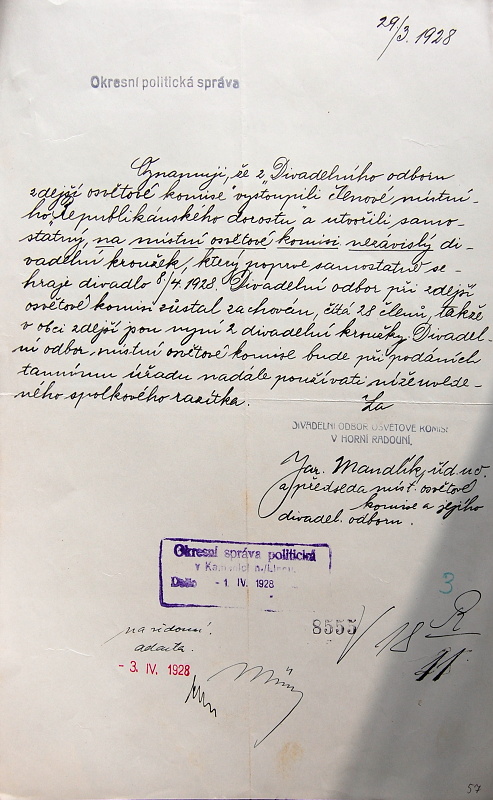 29/3. 1928
Okresní politická správa
Oznamuji, že z „Divadelního odboru
zdejší osvětové komise" vystoupili členové místní-
ho „Republikánského dorostu a utvořili samo-
statný, na místní osvětové komisi nezávislý di-
vadelní kroužek, který poprve samostatně se-
hraje divadlo 8/4 1928. Divadelní odbor při zdejší
osvětové komisi zůstal zachován, čítá 28 členů, takže
v obci zdejší jsou nyní 2 divadelní kroužky. Divadel-
ní odbor místní osvětové komise bude při podáních
tamnímu úřadu nadále používati níže uvede-
ného spolkového razítka.
Za
DIVADELNÍ ODBOR OSVĚTOVÉ KOMISE
V HORNÍ RADOUNI.
Jar. Mandlík, říd. uč.
a předseda míst. osvětové
komise a jejího
divadel. odboru.
Okresní správa politická
v Kamenici n./Lipou
Došlo - 1. IV. 1928
3
8555
18
na vědomí.
ad acta.
- 3. IV. 1928
57